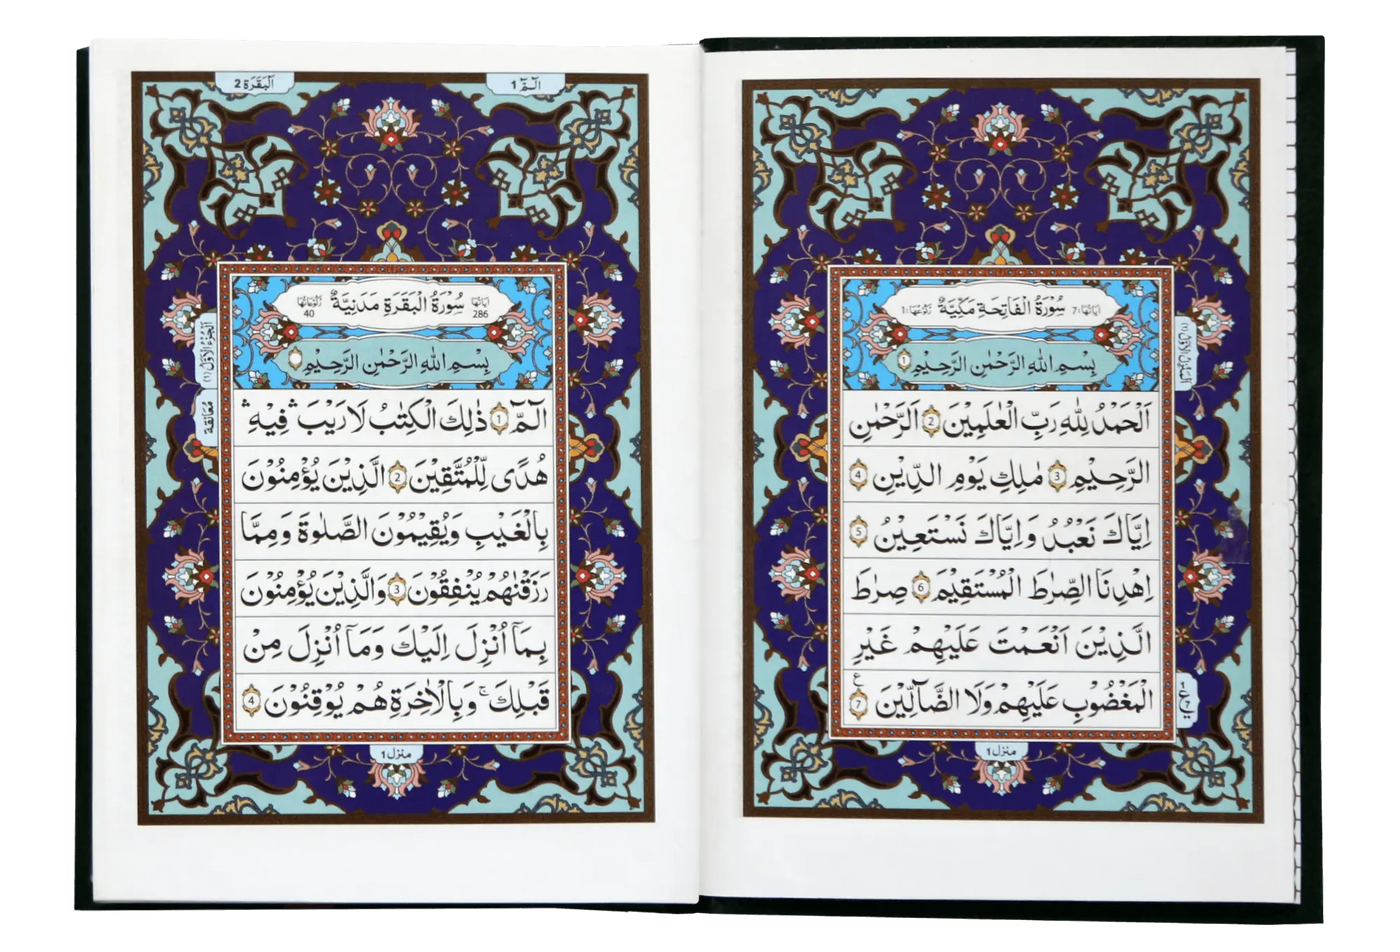 سُوْرَةُ الْفَاتِحَةِ مَكِّيَّةٌ
اٰيَاتُهَا: 7
رُكُوْعُهَا: 1
بِسْمِ اللّٰهِ الرَّحْمٰنِ الرَّحِيْمِ 1
اَلْحَمْدُ لِلّٰهِ رَبِّ الْعٰلَمِيْنَ 2 اَلرَّحْمٰنِ
الرَّحِيْمِ 3 مٰلِكِ يَوْمِ الدِّيْنِ 4
اِيَّاكَ نَعْبُدُ وَاِيَّاكَ نَسْتَعِيْنُ 5
اِهْدِنَا الصِّرَاطَ الْمُسْتَقِيْمَ 6 صِرَاطَ
الَّذِيْنَ اَنْعَمْتَ عَلَيْهِمْ غَيْرِ
الْمَغْضُوْبِ عَلَيْهِمْ وَلَا الضَّآلِّيْنَ 7 ع
1 ع 7
منزل ١
الٓمّٓ 1
اَلْبَقَرَة 2
سُوْرَةُ الْبَقَرَةِ مَدَنِيَّةٌ
اٰيَاتُهَا 286
رُكُوْعَاتُهَا 40
بِسْمِ اللّٰهِ الرَّحْمٰنِ الرَّحِيْمِ
اَلْجُزْءُ الْاَوَّلُ (١)
مُعَانَقَة
الٓمّٓ 1 ذٰلِكَ الْكِتٰبُ لَا رَيْبَ ۛ فِيْهِ ۛ
هُدًى لِّلْمُتَّقِيْنَ 2 الَّذِيْنَ يُؤْمِنُوْنَ
بِالْغَيْبِ وَيُقِيْمُوْنَ الصَّلٰوةَ وَمِمَّا
رَزَقْنٰهُمْ يُنْفِقُوْنَ 3 وَالَّذِيْنَ يُؤْمِنُوْنَ
بِمَآ اُنْزِلَ اِلَيْكَ وَمَآ اُنْزِلَ مِنْ
قَبْلِكَ ۚ وَبِالْاٰخِرَةِ هُمْ يُوْقِنُوْنَ 4
منزل ١